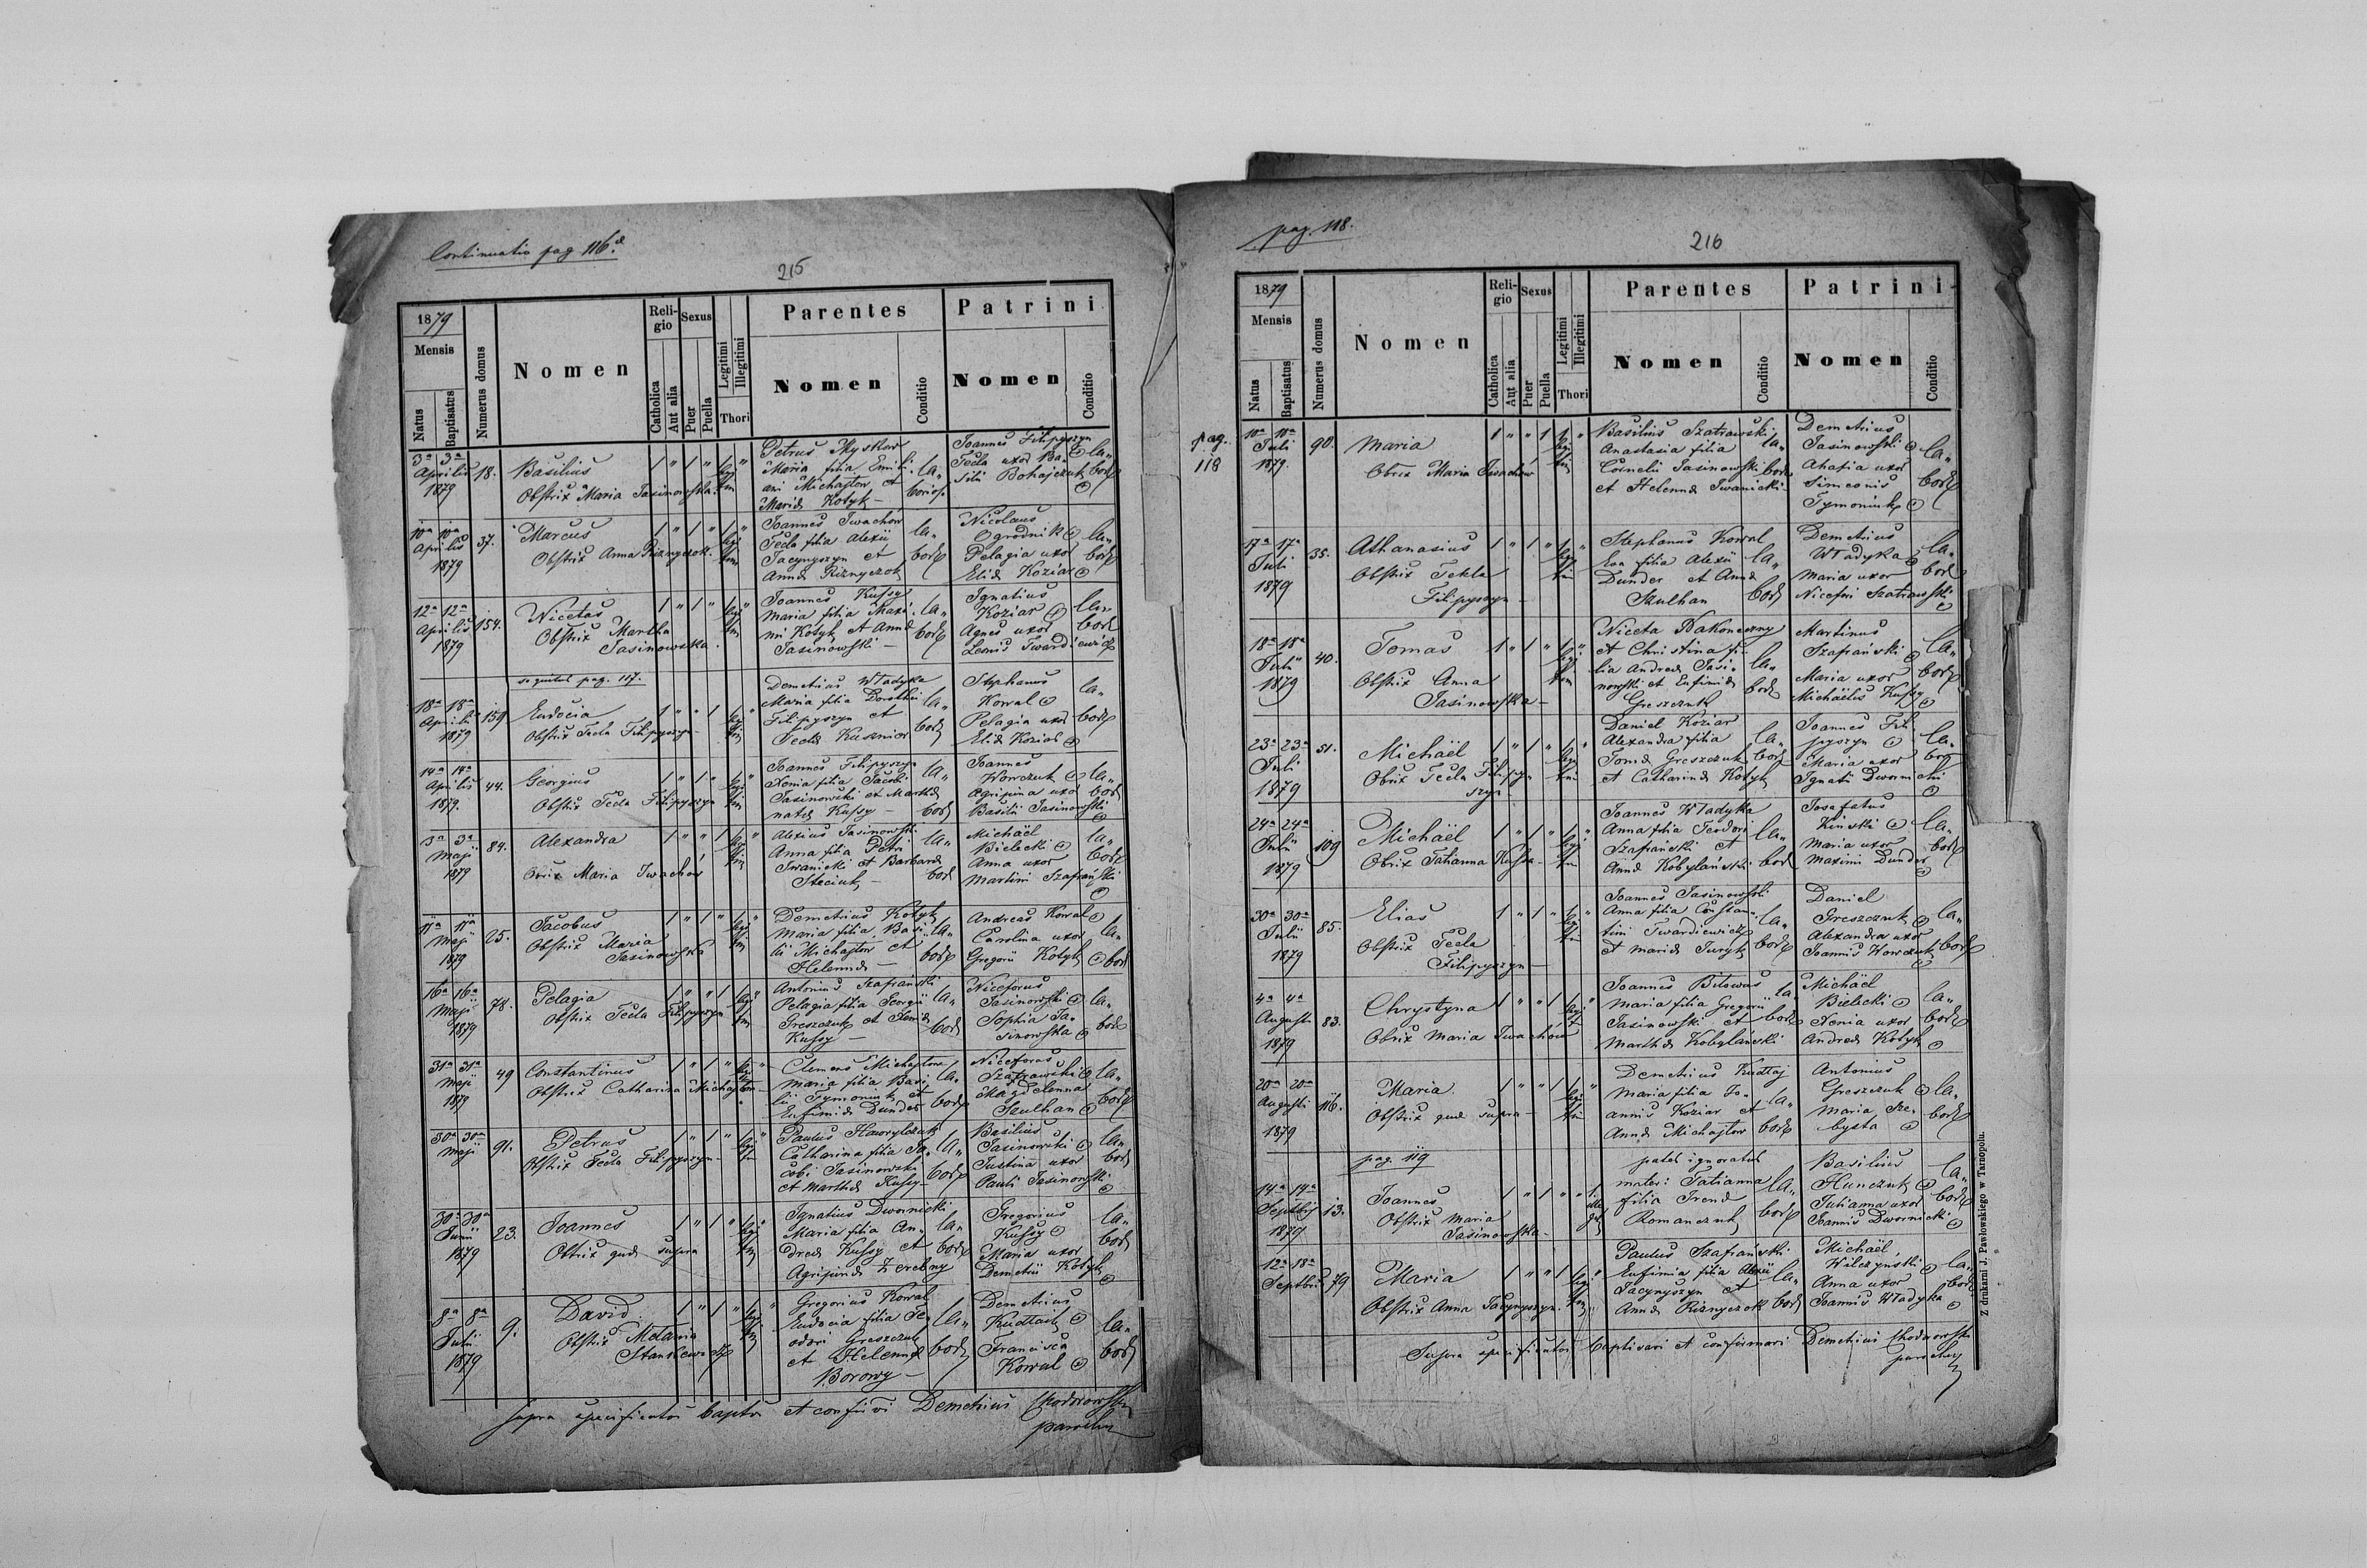 Continuatio pag 116.
215
1879
Mensis
Natus
Baptisatus
Numerus domus
Nomen
Religio
Catholica
Aut alia
Sexus
Puer
Puella
Legitimi
Illegitimi
Thori
Parentes
Nomen
Conditio
Patrini
Nomen
Conditio
3a 3a Aprilis 1879
18.
Basilius
Obstrix Maria Jasinowska
1 " 1 "
Petrus
Maria filia Emili-
ani Michajłow et
Maria Kotyk
Joannes Filipyszyn
Tecla uxor Ba-
silii Bohajczuk
10a 10a Aprilis 1879
37.
Marcus
Obstrix Anna Riznyczok
1 " 1 "
Joannes Iwachów
Tecla filia Alexii
Jacynyszyn et
Anna Riznyczok
Nicolaus
Ogrodnik
Pelagia uxor
Eliae Koziar
12a 12a Aprilis 1879
154.
Nicetas
Obstrix Martha
Jasinowska
1 " 1 "
Joannes Kussy
Maria filia Maxi-
mi Kotyk et Anna
Jasinowski
Ignatius
Koziar
Agnes uxor
Leonis Twardiewicz
sequitur pag. 117.
18a 18a Aprilis 1879
159
Eudocia
Obstrix Tecla Filipyszyn
1 " " 1
Demetrius Władyka
Maria filia Dorothei
Filipyszyn et
Tecla Kusznier
Stephanus
Kowal
Pelagia uxor
Eliae Koziar
14a 14a Aprilis 1879.
44.
Georgius
Obstrix Tecla Filipyszyn
1 " 1 "
Joannes Filipyszyn
Xenia filia Jacobi
Jasinowski et Martha
nata Kussy
Joannes
Worczuk
Agripina uxor
Basilii Jasinowski
3a 3a Maji 1879
84.
Alexandra
Obrix Maria Iwachów
1 " " 1
Alexius Jasinowski
Anna filia Petri
Iwanicki et Barbara
Steciuk
Michaël
Bielecki
Anna uxor
Martini Szafrański
11a 11a Maji 1879
25.
Jacobus
Obstrix Maria
Jasinowska
1 " 1 "
Demetrius Kotyk
Maria filia Basi-
lii Michajłow et
Helenna
Andreas Kowal
Carolina uxor
Gregorii Kotyk
16a 16a Maji 1879
78.
Pelagia
Obstrix Tecla Filipyszyn
1 " " 1
Antonius Szafrański
Pelagia filia Georgii
Greszczuk et Xenia
Kussy
Niceforus
Jasinowski
Sophia Ja-
sinowska
31a 31a Maji 1879
49
Constantinus
Obstrix Catharina Michajłow
1 " 1 "
Clemens Michajłow
Maria filia Basi-
lii Tymoniuk et
Eufimia Dunder
Niceforus
Szatrawski
Magdelenna
Szulhan
30a 30a Maji
91.
Petrus
Obstrix Tecla Filipyszyn
1 " 1 "
Paulus Hawrylczuk
Catharina filia Ja-
cobi Jasinowski
et Martha Kussy
Basilius
Jasinowski
Justina uxor
Pauli Jasinowski
30a 30a Junii 1879
23.
Joannes
Obstrix quae supra
1 " 1 "
Ignatius Dwornicki
Maria filia An-
dreae Kussy et
Agripina Zerebny
Gregorius
Kussy
Maria uxor
Demetrii Kotyk
8a 8a Julii 1879
9.
David
Obstrix Melania
1 " 1 "
Gregorius Kowal
Eudocia filia Te-
odori Greszczuk
et Helenna
Borowy
Demetrius
Kudłach
Francisca
Kowal
Supra specificatos baptisavi et confirmavi Demetrius Chodorowski
parochus
pag. 118.
216
1879
Mensis
Natus
Baptisatus
Numerus domus
Nomen
Religio
Catholica
Aut alia
Sexus
Puer
Puella
Legitimi
Illegitimi
Thori
Parentes
Nomen
Conditio
Patrini
Nomen
Conditio
pag. 118
10a 10a Juli 1879.
90.
Maria
Obrix Maria Iwachów
1 " " 1
Basilius Szatrawski
Anastasia filia
Cornelii Jasinowski
et Helenna Iwanicki
Demetrius
Jasinowski
Ahafia uxor
Simeonis
Tymoniuk
17a 17a Juli 1879
35.
Athanasius
Obstrix Tekla
Filipyszyn
1 " 1 "
Stephanus Kowal
Eva filia Alexii
Dunder et Anna
Szulhan
Demetrius
Władyka
Maria uxor
Nicefori Szatrawski
18a 18a Julii 1879
40.
Tomas
Obstrix Anna
Jasinowska
1 " 1 "
Niceta Nakoneczny
et Christina fi-
lia Andreae Jasi-
nowski et Eufimia
Greszczuk
Martinus
Szafrański
Maria uxor
Michaëlis Kussy
23a 23a Juli 1879
51.
Michaël
Obrix Tecla Filipy-
szyn
1 " 1 "
Daniel Koziar
Alexandra filia
Toma Greszczuk
et Catharina Kotyk
Joannes Fili-
pyszyn
Maria uxor
Ignatii Dwornicki
24a 24a Julii 1879
109
Michaël
Obrix Tatianna Kussa
1 " 1 "
Joannes Władyka
Anna filia Teodori
Szafrański et
Anna Kobylański
Josafatus
Kinski
Maria uxor
Maximi Dunder
30a 30a Julii 1879
85.
Elias
Obstrix Tecla
Filipyszyn
1 " 1 "
Joannes Jasinowski
Anna filia Constan-
tini Twardiewicz
et Maria Juryk
Daniel
Greszczuk
Alexandra uxor
Joannis Worczuk
4a 4a Augusti 1879
83.
Chrystyna
Obrix Maria Iwachów
1 " " 1
Joannes Biłowus
Maria filia Gregorii
Jasinowski et
Martha Kobylański
Michaël
Bielecki
Xenia uxor
Andreae Kotyk
20a 20a Augusti 1879
116.
Maria
Obstrix quae supra
1 " " 1
Demetrius Kudłaj
Maria filia Jo-
annis Koziar et
Anna Michajłow
Antonius
Greszczuk
Maria Sze-
bysta
pag. 119
14a 14a Septbris 1879
13.
Joannes
Obstrix Maria
Jasinowska
1 " 1 "
pater ignoratur
mater: Tatianna
filia Irena
Romanczuk
Basilius
Hunczuk
Julianna uxor
Joannis Dwornicki
12a 18a Septbris
79
Maria
Obstrix Anna Jacynyszyn
1 " " 1
Paulus Szafrański
Eufimia filia Alexii
Jacynyszyn et
Anna Riznyczok
Michaël
Wilczynski
Anna uxor
Joannis Władyka
Supra specificatos baptisavi et confirmavi Demetrius Chodorowski
parochus
Z drukarni J. Pawłowskiego w Tarnopolu.